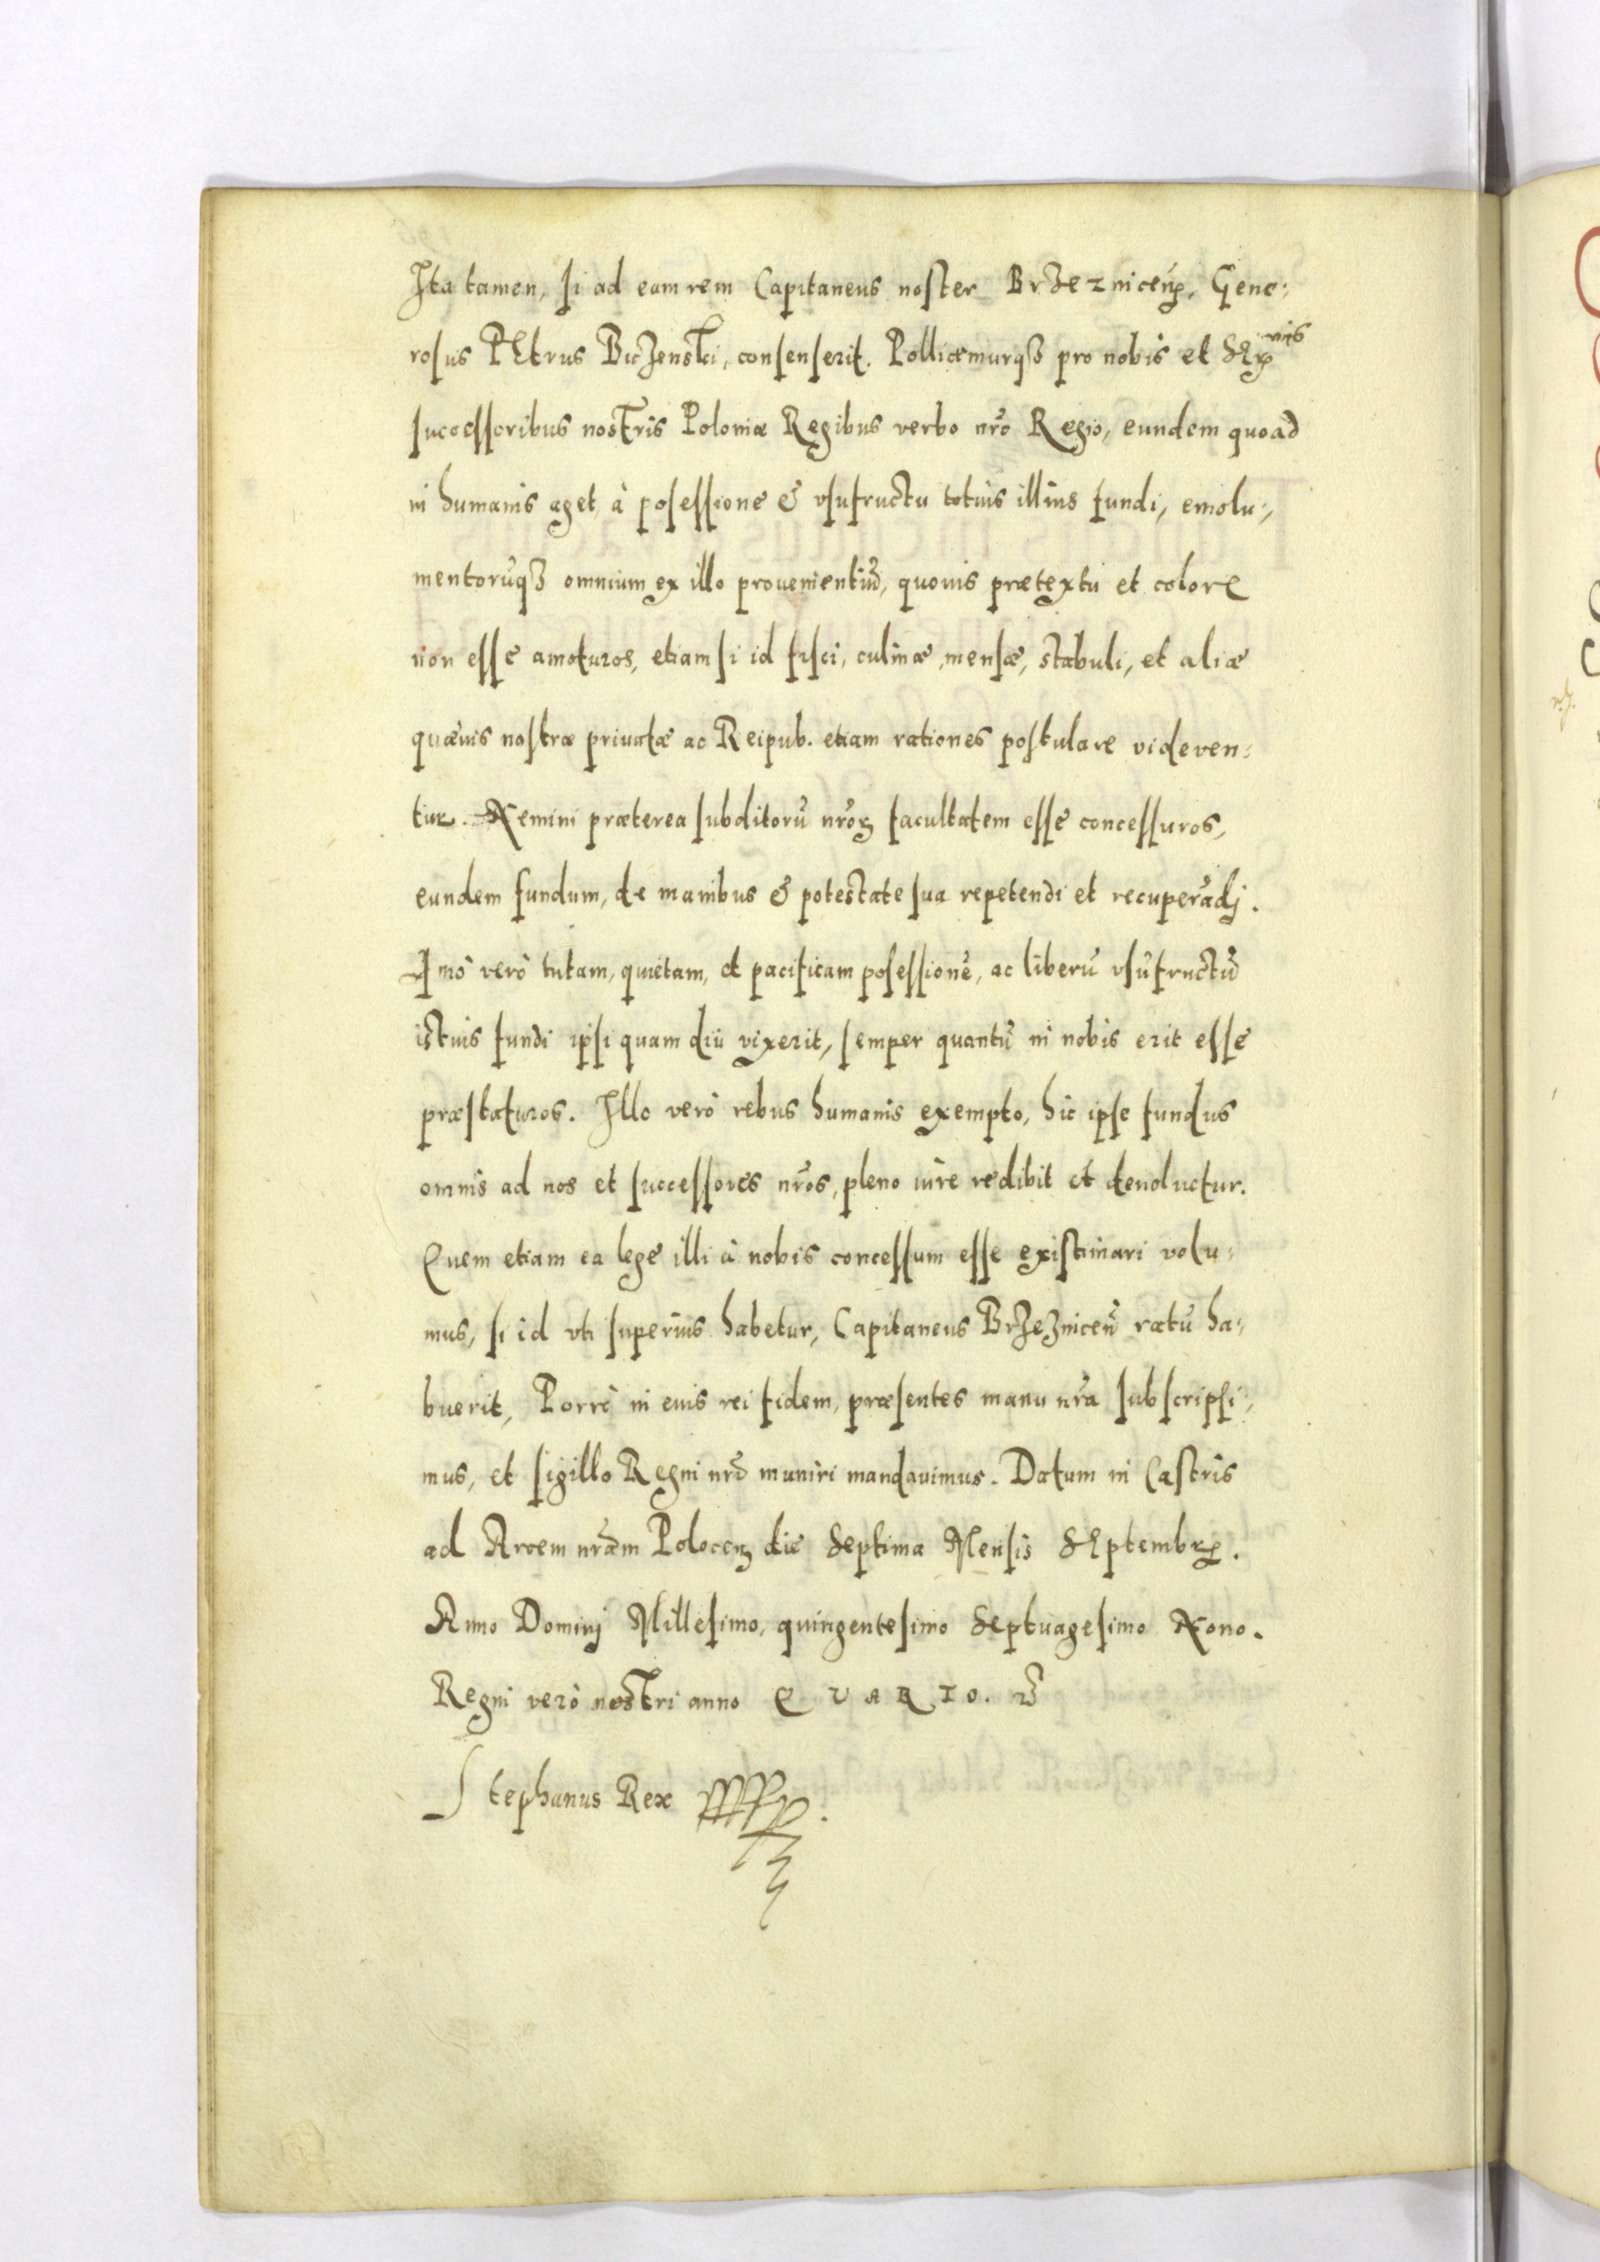 Ita tamen, si ad eam rem Capitaneus noster Brzezniceñ, Gene:
rosus PEtrus Biczenski, consenserit. Pollicemurqȝ pro nobis et Serᵐⁱˢ
successoribus nostris Poloniæ Regibus verbo nr̃o Regio, eundem quoad
in humanis aget, à posessione & vsufructu totius illius fundi, emolu:,
mentorũqȝ omnium ex illo prouenientiũ, quouis prætextu et colore
non esse amoturos, etiam si id fisci, culinæ, mensæ, stabuli, et aliæ
quæuis nostræ priuatæ ac Reipub. etiam rationes postulare videren:
tur. Nemini præterea subditorũ nr̃oꝝ facultatem esse concessuros,
eundem fundum, de manibus & potestate sua repetendi et recuperãdj.
Imò verò tutam, quietam, et pacificam posessionẽ, ac liberũ vsũfructũ
istius fundi ipsi quam diũ vixerit, semper quantũ in nobis erit esse
præstaturos. Illo verò rebus humanis exempto, hic ipse fundus
omnis ad nos et successores nr̃os, pleno iure redibit et deuoluetur.
Quem etiam ea lege illi à nobis concessum esse existimari volu:
mus, si id vti superius habetur, Capitaneus Brzezniceñ ratũ ha:
buerit, Porrò in euis rei fidem, præsentes manu nr̃a subscripsi:
mus, et sigillo Regni nr̃i muniri mandauimus. Datum in Castris
ad Arcem nr̃am Polocen̄ die Septima Mensis SEptembrꝭ.
Anno Dominj Millesimo, quingentesimo Septuagesimo Nono.
Regni verò nostri anno QVARTO.
Stephanus Rex